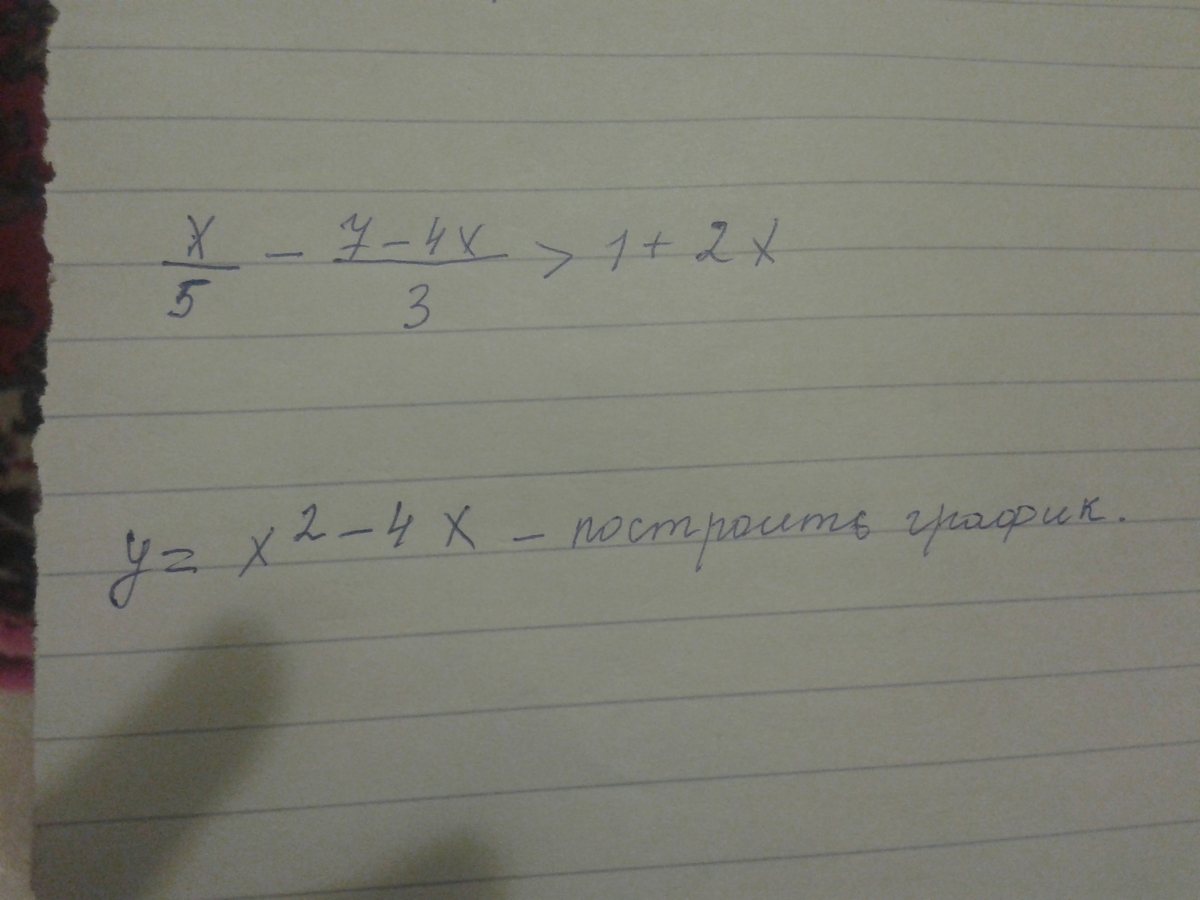 x/5 - 7-4x/3 > 1 + 2x
y = x² - 4x - построить график.